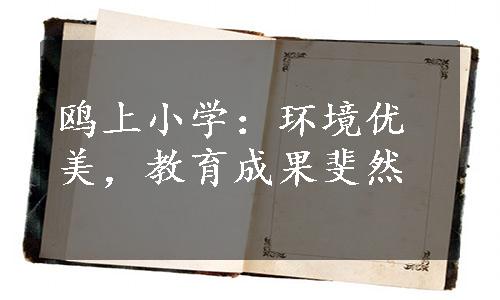 鸥上小学：环境优
美，教育成果斐然